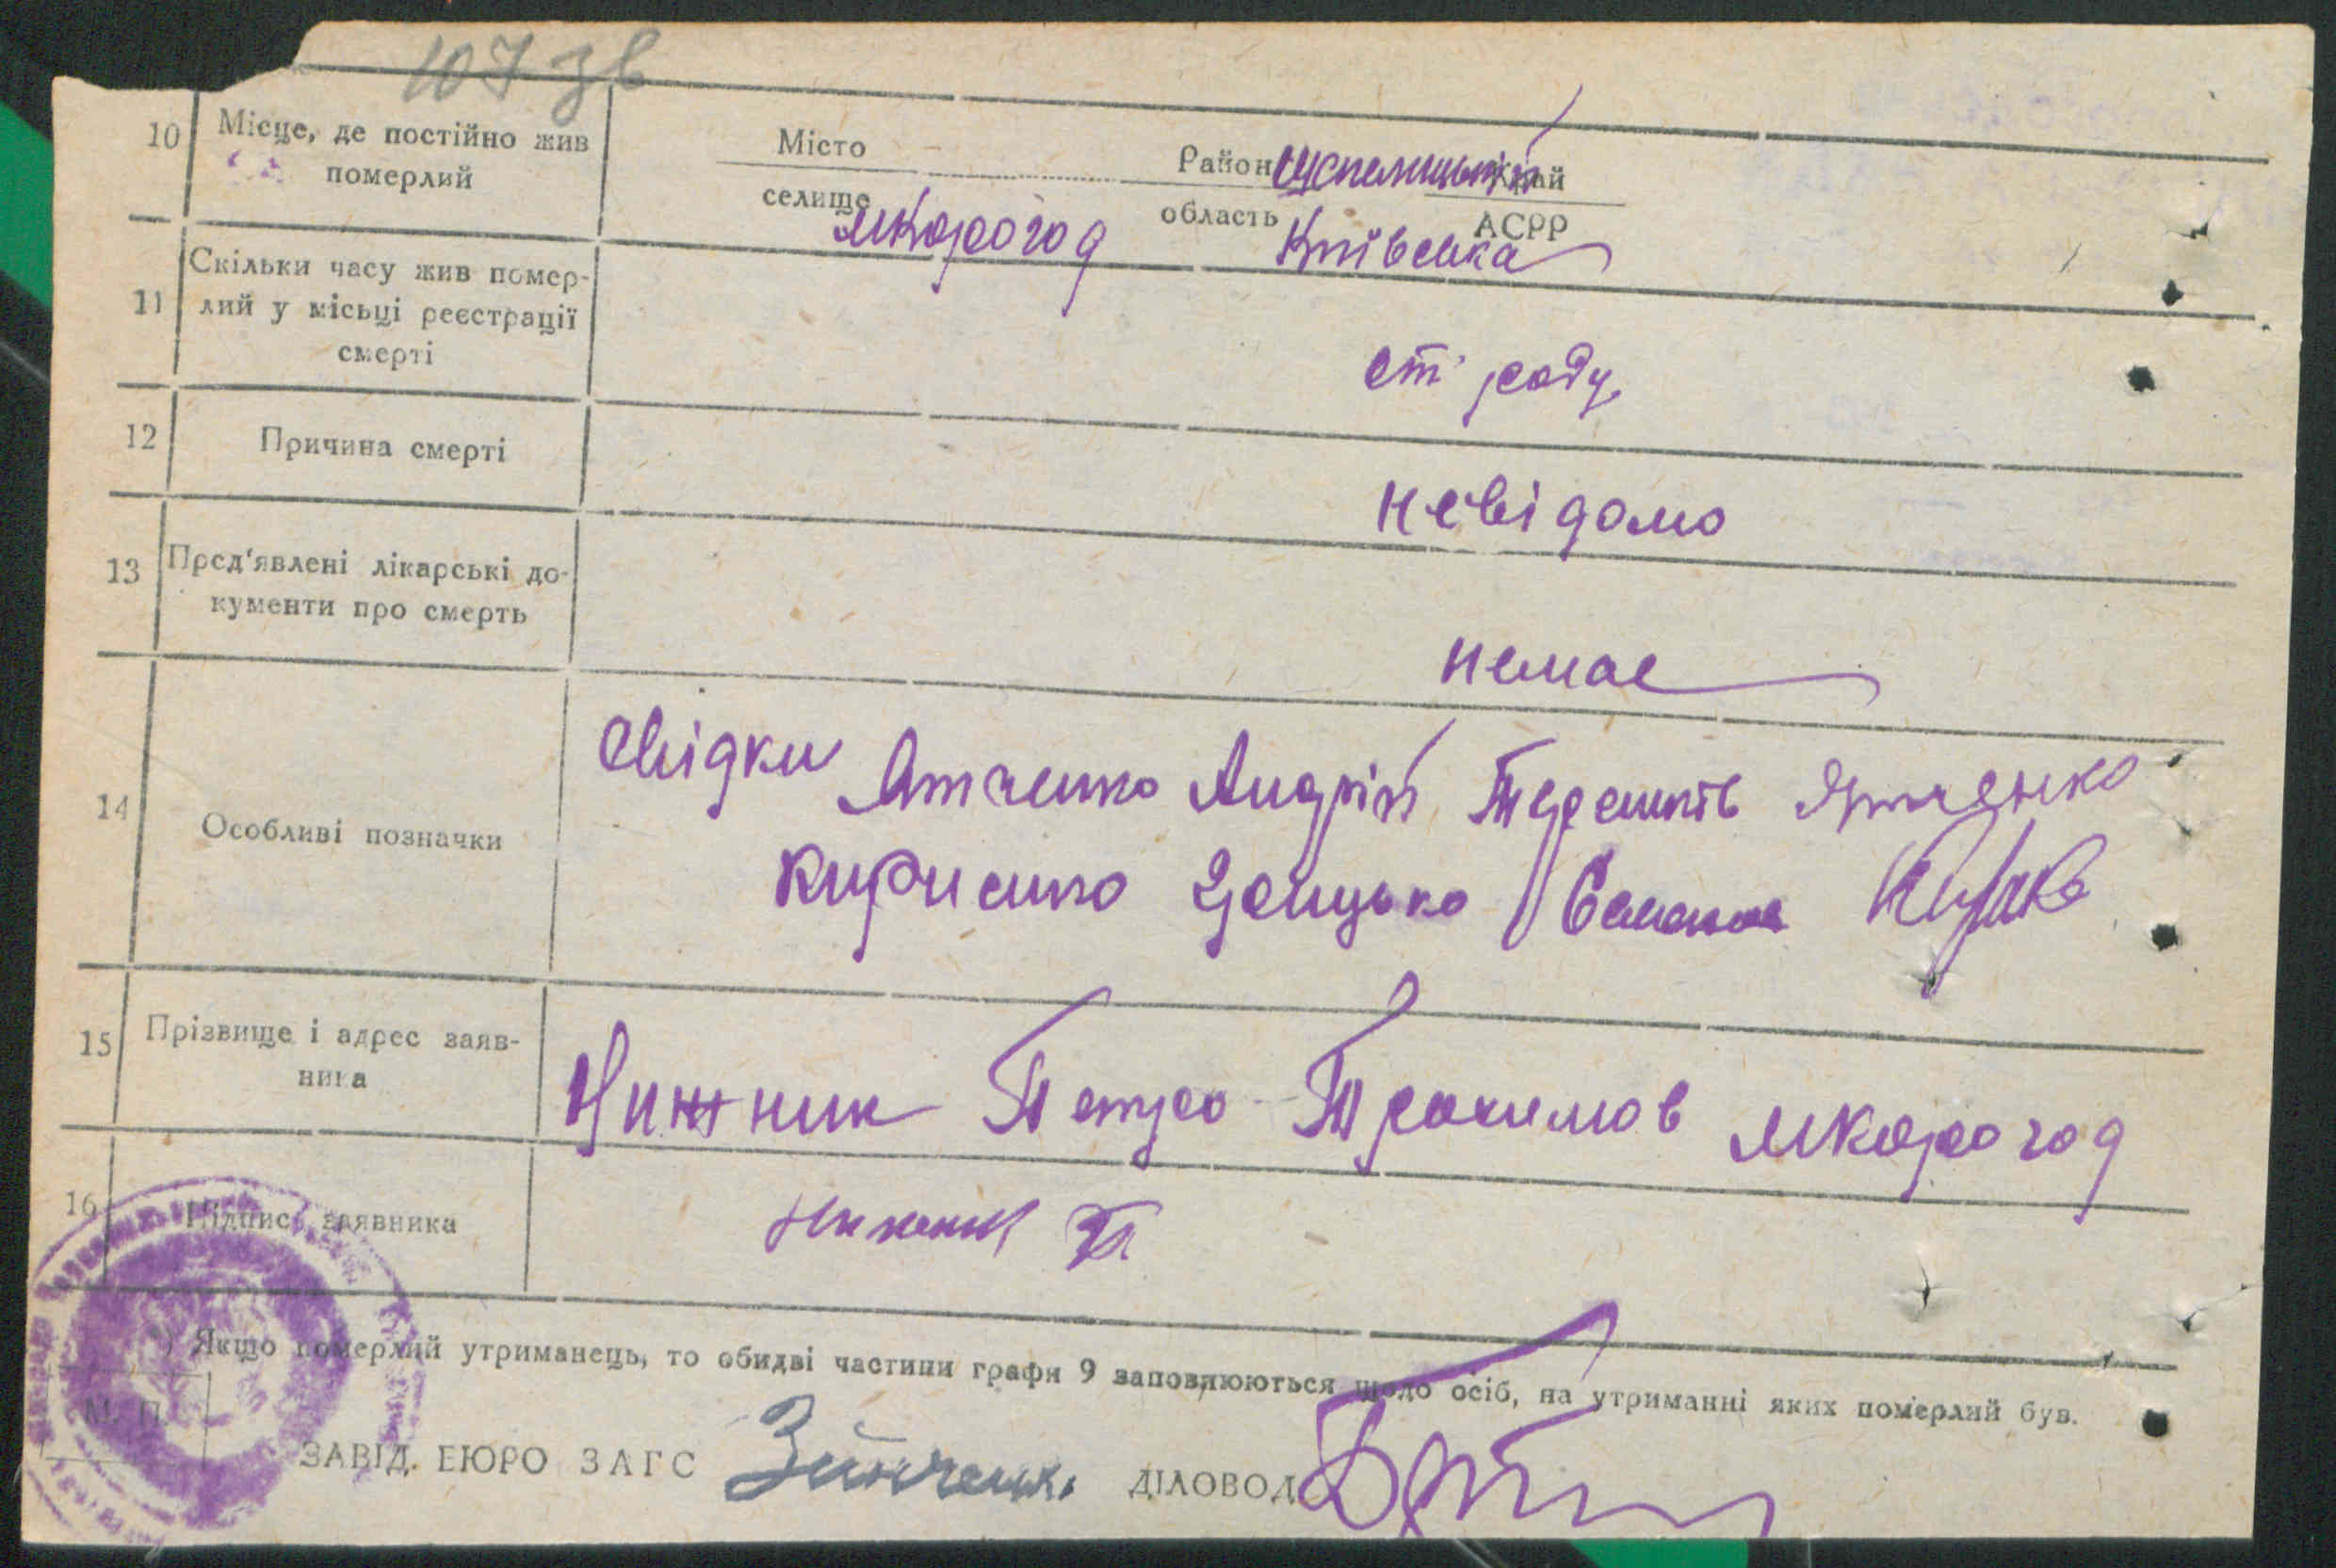 107 зв
10 Місце, де постійно жив
померлий
Місто
селище мКорогод
Район
область Київська
Край
АСРР
11 Скільки часу жив помер-
лий у місьці реєстрації
смерті
ст роду
12 Причина смерті
невідомо
13 Пред'явлені лікарські до-
кументи про смерть
немає
14 Особливі позначки
свідки Ятченко Андрій Терешків Ятченко
Грицько
15 Прізвище і адрес заяв-
ника
Нижник Петро Трохимов мКорогод
16 Підпис заявника
Нижник П
*) Якщо померлий утриманець, то обидві частини графи 9 заповнюються щодо осіб, на утриманні яких померлий був.
М. П.
ЗАВІД. БЮРО ЗАГС
ДІЛОВОД